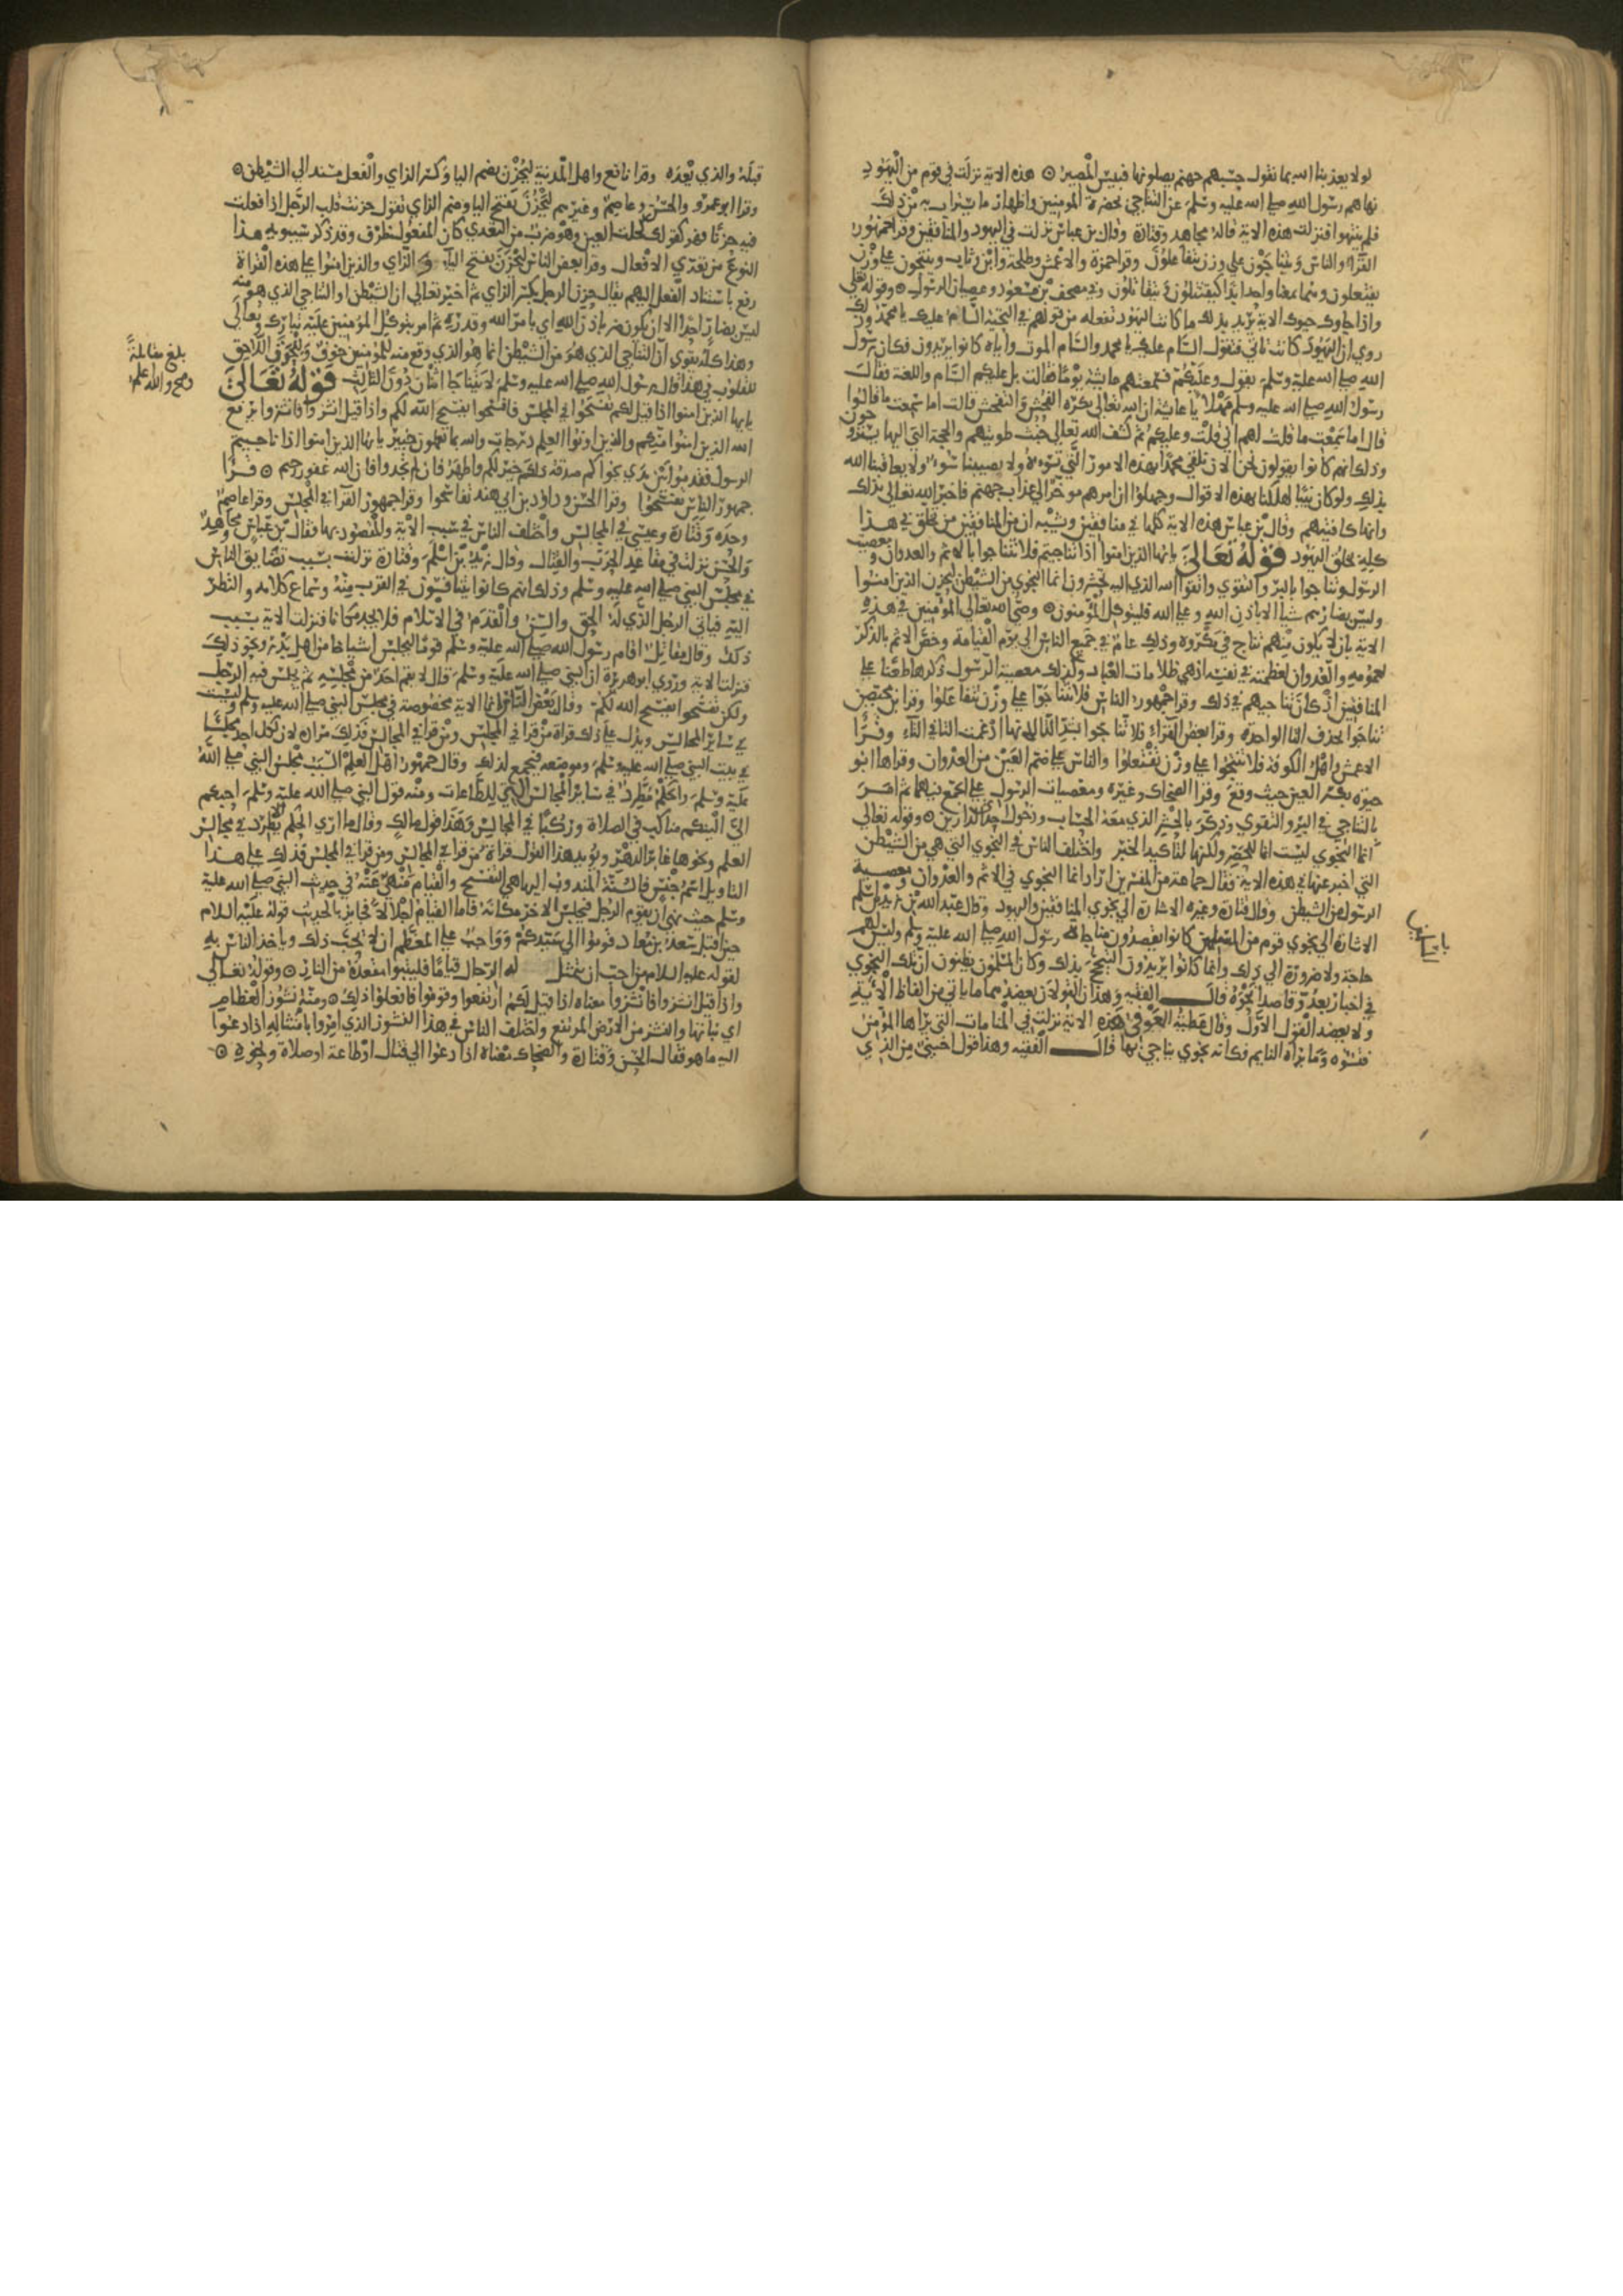 لولا يعذبنا الله بما نقول حسبهم جهنم يصلونها فبيس المصير ۞ هذه الاية نزلت في قوم من اليهود
نهاهم رسول الله صلى الله عليه وسلم عن التناجي بحضرة المومنين واظهار ما يستراب به من ذلك
فلم ينتهوا فنزلت هذه الاية قاله مجاهد وقتادة وقال بن عباس نزلت في اليهود والمنافقين وقرا جمهور
القرا والناس ويتناجون على وزن يتفاعلون وقرا حمزة والاعمش وطلحة وابن وثاب وينتجون على وزن
يفتعلون وهما بمعنا واحد ابدا كيقتتلون ويتقاتلون وفي مصحف بن مسعود وعصيان الرسول ۞ وقوله تعالى
واذا جاوك حيوك الاية يريد بذلك ما كانت اليهود تفعله من قولهم في التحية السام عليك يا محمد وذلك
روي ان اليهود كانت تاتي فتقول السام عليك يا محمد والسام الموت واياه كانوا يريدون فكان رسول
الله صلى الله عليه وسلم يقول وعليكم فسمعتهم عايشة يوما فقالت بل عليكم السام واللعنة فقال
رسول الله صلى الله عليه وسلم مهلا يا عايشة ان الله تعالى يكره الفحش والتفحش قالت اما سمعت ما قالوا
قال اما سمعت ما قلت لهم اني قلت وعليكم ثم كشف الله تعالى خبث طويتهم والحجة التي اليها يستروحون
وذلك انهم كانوا يقولون نحن الان نلقى محمدا بهذه الامور التي تسوءه ولا يصيبنا سوء ولا يعاقبنا الله
بذلك ولو كان نبيا لهلكنا بهذه الاقوال وجهلوا ان امرهم موخر الى عذاب جهنم فاخبر الله تعالى بذلك
وانها كافيتهم وقال بن عباس هذه الاية كلها في منافقين ويشبه ان من المنافقين من تخلق في هذا
كله بخلق اليهود قوله تعالى يا يها الذين امنوا اذا تناجيتم فلا تتناجوا بالاثم والعدوان ومعصيت
الرسول وتناجوا بالبر والتقوى واتقوا الله الذي اليه تحشرون انما النجوى من الشيطن ليحزن الذين امنوا
وليس بضارهم شيا الا باذن الله وعلى الله فليتوكل المومنون ۞ وصى الله تعالى المومنين في هذه
الاية بان لا يكون منهم تناج في مكروه وذلك عام في جميع الناس الى يوم القيامة وخص الاثم بالذكر
لعمومه والعدوان لعظمته في نفسه اذ هي ظلامات العباد وكذلك معصية الرسول ذكرها طعنا على
المنافقين اذ كان تناجيهم في ذلك وقرا جمهور الناس فلا تتناجوا على وزن تتفاعلوا وقرا بن محيصن
تناجوا بحذف التا الواحدة وقرا بعض القراء فلا تناجوا بشد التا لانها ادغمت التا في التاء وقرا
الاعمش واهل الكوفة فلا تنتجوا على وزن تفتعلوا والناس على ضم العين من العدوان وقراها ابو
حيوة بكسر العين حيث وقع وقرا الضحاك وغيره ومعصيات الرسول على الجمع فيهما ثم امر
بالتناجي في البر والتقوى وذكر بالحشر الذي معه الحساب ودخول احد الدارين ۞ وقوله تعالى
انما النجوى ليست انما للحصر ولكنها لتاكيد الخبر واختلف الناس في النجوى التي هي من الشيطن
التي اخبر عنها في هذه الاية فقال جماعة من المفسرين اراد انما النجوى في الاثم والعدوان ومعصية
الرسول من الشيطن وقال قتادة وغيره الاشارة الى نجوى المنافقين واليهود وقال عبد الله بن زيد بن اسلم
الاشارة الى نجوى قوم من المسلمين كانوا يقصدون مناجاة رسول الله صلى الله عليه وسلم وليس لهم
حاجة ولا ضرورة الى ذلك وانما كانوا يريدون التبجح بذلك وكان المسلمون يظنون ان تلك النجوى
في اخبار بعدو قاصد او نحوه قال الفقيه وهذان القولان يعضدهما ما ياتي من الفاظ الاية
ولا يعضد القول الاول وقال عطية العوفي هذه الاية نزلت في المنامات التي يراها المومن
فتسوه وما يراه النايم فكانه نجوى يناجي بها قال الفقيه وهذا قول اجنبي من الذي
قبله والذي بعده وقرا نافع واهل المدينة ليحزن بضم اليا وكسر الزاي والفعل مسند الى الشيطن ۞
وقرا ابو عمرو والحسن وعاصم وغيرهم ليحزن بفتح اليا وضم الزاي تقول حزنت قلب الرجل اذا فعلت
فيه حزنا فهو كقولك كحلت العين وهو ضرب من التعدي كان المفعول ظرف وقد ذكر سيبويه هذا
النوع من تعدي الافعال وقرا بعض الناس ليحزن بفتح اليا والزاي والذين امنوا على هذه القراة
رفع باسناد الفعل اليهم يقال حزن الرجل بكسر الزاي ثم اخبر تعالى ان الشيطن او التناجي الذي هو منه
ليس بضار احدا الا ان يكون ضر باذن الله اي بامر الله وقدره ثم امر بتوكل المومنين عليه تبارك وتعالى
وهذا كله يقوي ان التناجي الذي هو من الشيطن انما هو الذي وقع منه للمومنين خوف وللخوف اللاحق
للقلوب في هذا قال رسول الله صلى الله عليه وسلم لا يتناجا اثنان دون الثالث قوله تعالى
يايها الذين امنوا اذا قيل لكم تفسحوا في المجلس فافسحوا يفسح الله لكم واذا قيل انشزوا فانشزوا يرفع
الله الذين امنوا منكم والذين اوتوا العلم درجات والله بما تعملون خبير يا يها الذين امنوا اذا ناجيتم
الرسول فقدموا بين يدي نجواكم صدقة ذلك خير لكم واطهر فان لم تجدوا فان الله غفور رحيم ۞ قرا
جمهور الناس تفسحوا وقرا الحسن وداود بن ابي هند تفاسحوا وقرا جمهور القرا في المجلس وقرا عاصم
وحده وقتادة وعيسى في المجالس واختلف الناس في سبب الاية والمقصود بها فقال بن عباس ومجاهد
والحسن نزلت في مقاعد الحرب والقتال وقال زيد بن اسلم وقتادة نزلت بسبب تضايق الناس
في مجلس النبي صلى الله عليه وسلم وذلك انهم كانوا يتنافسون في القرب منه وسماع كلامه والنظر
اليه فياتي الرجل الذي له الحق والسن والقدم في الاسلام فلا يجد مكانا فنزلت الاية بسبب
ذلك وقال مقاتل اقام رسول الله صلى الله عليه وسلم قوما ليجلس اشياخا من اهل بدر ونحو ذلك
فنزلت الاية وروي ابو هريرة ان النبي صلى الله عليه وسلم قال لا يقم احد من مجلسه ثم يجلس فيه الرجل
ولكن تفسحوا يفسح الله لكم وقال بعض الناس انما الاية مخصوصة في مجلس النبي صلى الله عليه وسلم وليست
في ساير المجالس ويدل على ذلك قراة من قرا في المجلس ومن قرا في المجالس فذلك مراده لان لكل احد مجلسا
في بيت النبي صلى الله عليه وسلم وموضعه فيجمع لذلك وقال جمهور اهل العلم السبب مجلس النبي صلى الله
عليه وسلم والحكم مطرد في ساير المجالس التي للطاعات ومنه قول النبي صلى الله عليه وسلم احبكم
الي الينكم مناكب في الصلاة وركبا في المجالس وهذا قول مالك وقال ما ارى الحكم الا يطرد في مجالس
العلم ونحوها غابر الدهر ويويد هذا القول قراة من قرا في المجالس ومن قرا في المجلس فذلك على هذا
التاويل اسم جنس فالسنة المندوب اليها هي التفسح والقيام منهي عنه في حديث النبي صلى الله عليه
وسلم حيث نهى ان يقوم الرجل فيجلس الاخر مكانه فاما القيام اجلالا فجايز بالحديث قوله عليه السلام
حين اقبل سعد بن معاذ قوموا الى سيدكم وواجب على المعظم ان لا يحب ذلك وياخذ الناس به
لقوله عليه السلام من احب ان يتمثل له الرجال قياما فليتبوا مقعده من النار ۞ وقوله تعالى
واذا قيل انشزوا فانشزوا معناه اذا قيل لكم ارتفعوا وقوموا فافعلوا ذلك ۞ ومنه نشوز العظام
اي نباتها والنشز من الارض المرتفع واختلف الناس في هذا النشوز الذي امروا بامتثاله اذا دعوا
اليه ما هو فقال الحسن وقتادة والضحاك معناه اذا دعوا الى قتال او طاعة او صلاة ونحوه ۞
بلغ مقابلة
وصح والله اعلم